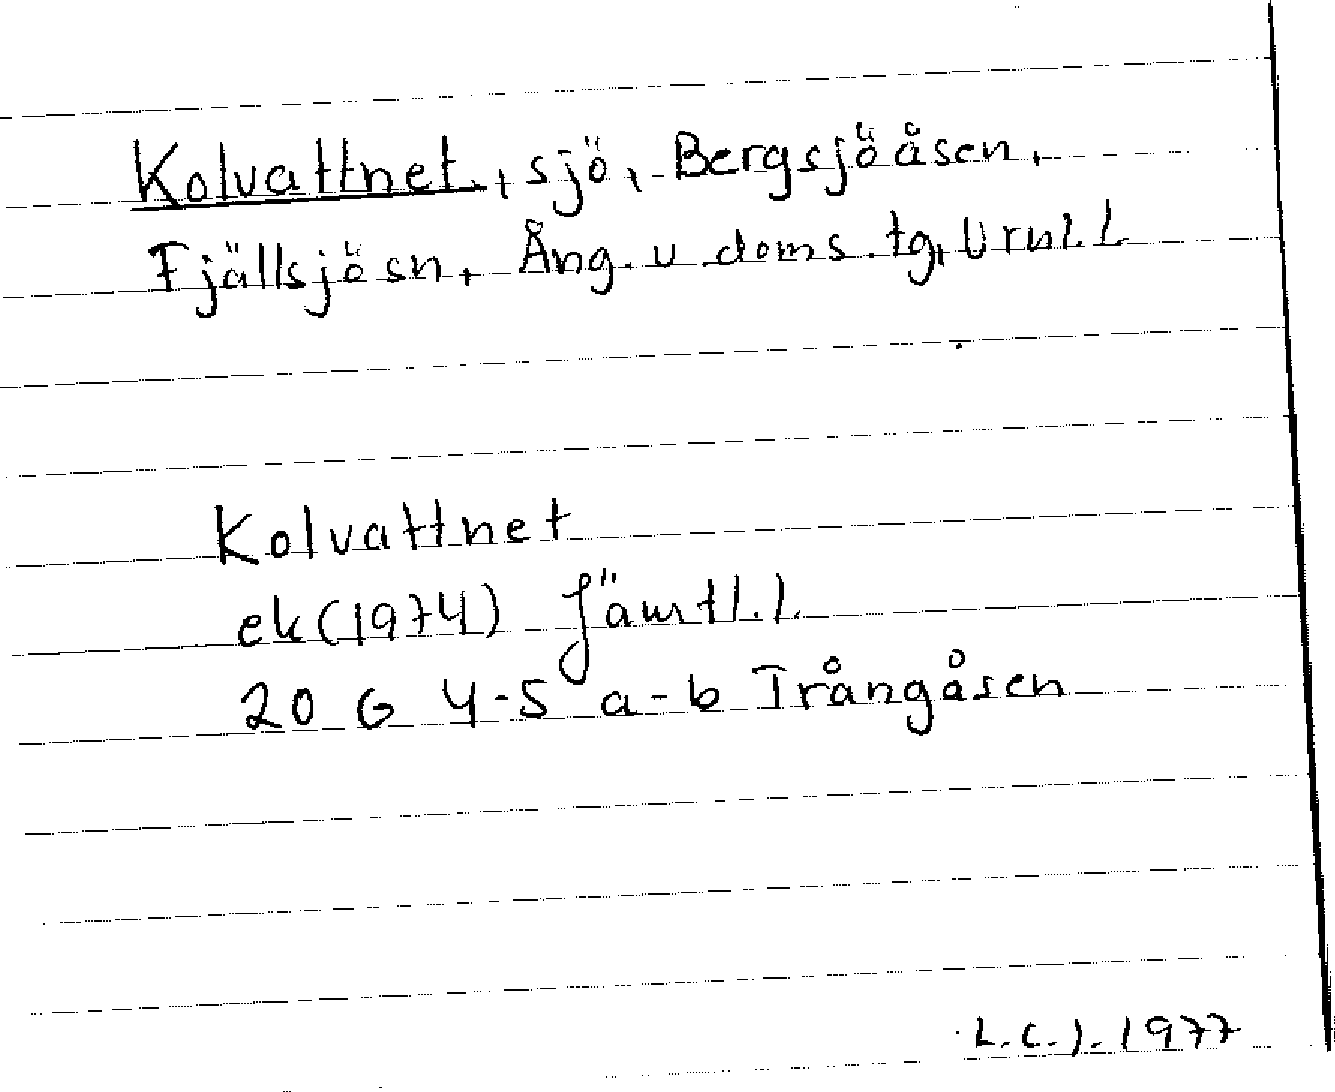 Kolvattnet, sjö, Bergsjöåsen,
Fjällsjösn, Ång. v doms. tg,
Kolvattnet
ek (1974) Jämtl. l.
20 G 4-5 a-b Trångåsen
L.C.J. 1977